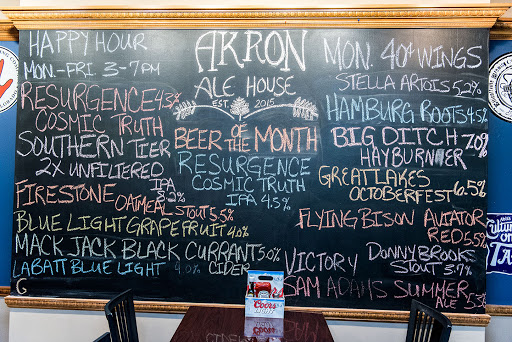 HAPPY HOUR
MON.-FRI. 3-7PM
RESURGENCE 4.5%
COSMIC TRUTH
SOUTHERN TIER
2X UNFILTERED
IPA
8.2%
FIRESTONE OATMEAL STOUT 5.5%
BLUE LIGHT GRAPEFRUIT 4.0%
MACK JACK BLACK CURRANT 5.0%
CIDER
LABATT BLUE LIGHT 4.0%
AKRON
ALE HOUSE
EST. 2015
BEER OF THE MONTH
RESURGENCE
COSMIC TRUTH
IPA 4.5%
MON. 40¢ WINGS
STELLA ARTOIS 5.2%
HAMBURG ROOTS 4.5%
BIG DITCH 7.0%
HAYBURNER
GREAT LAKES
OCTOBERFEST 6.5%
FLYING BISON AVIATOR
RED 5.5%
VICTORY DONNYBROOK
STOUT 3.7%
SAM ADAMS SUMMER
ALE 5.3%
Coors
LIGHT